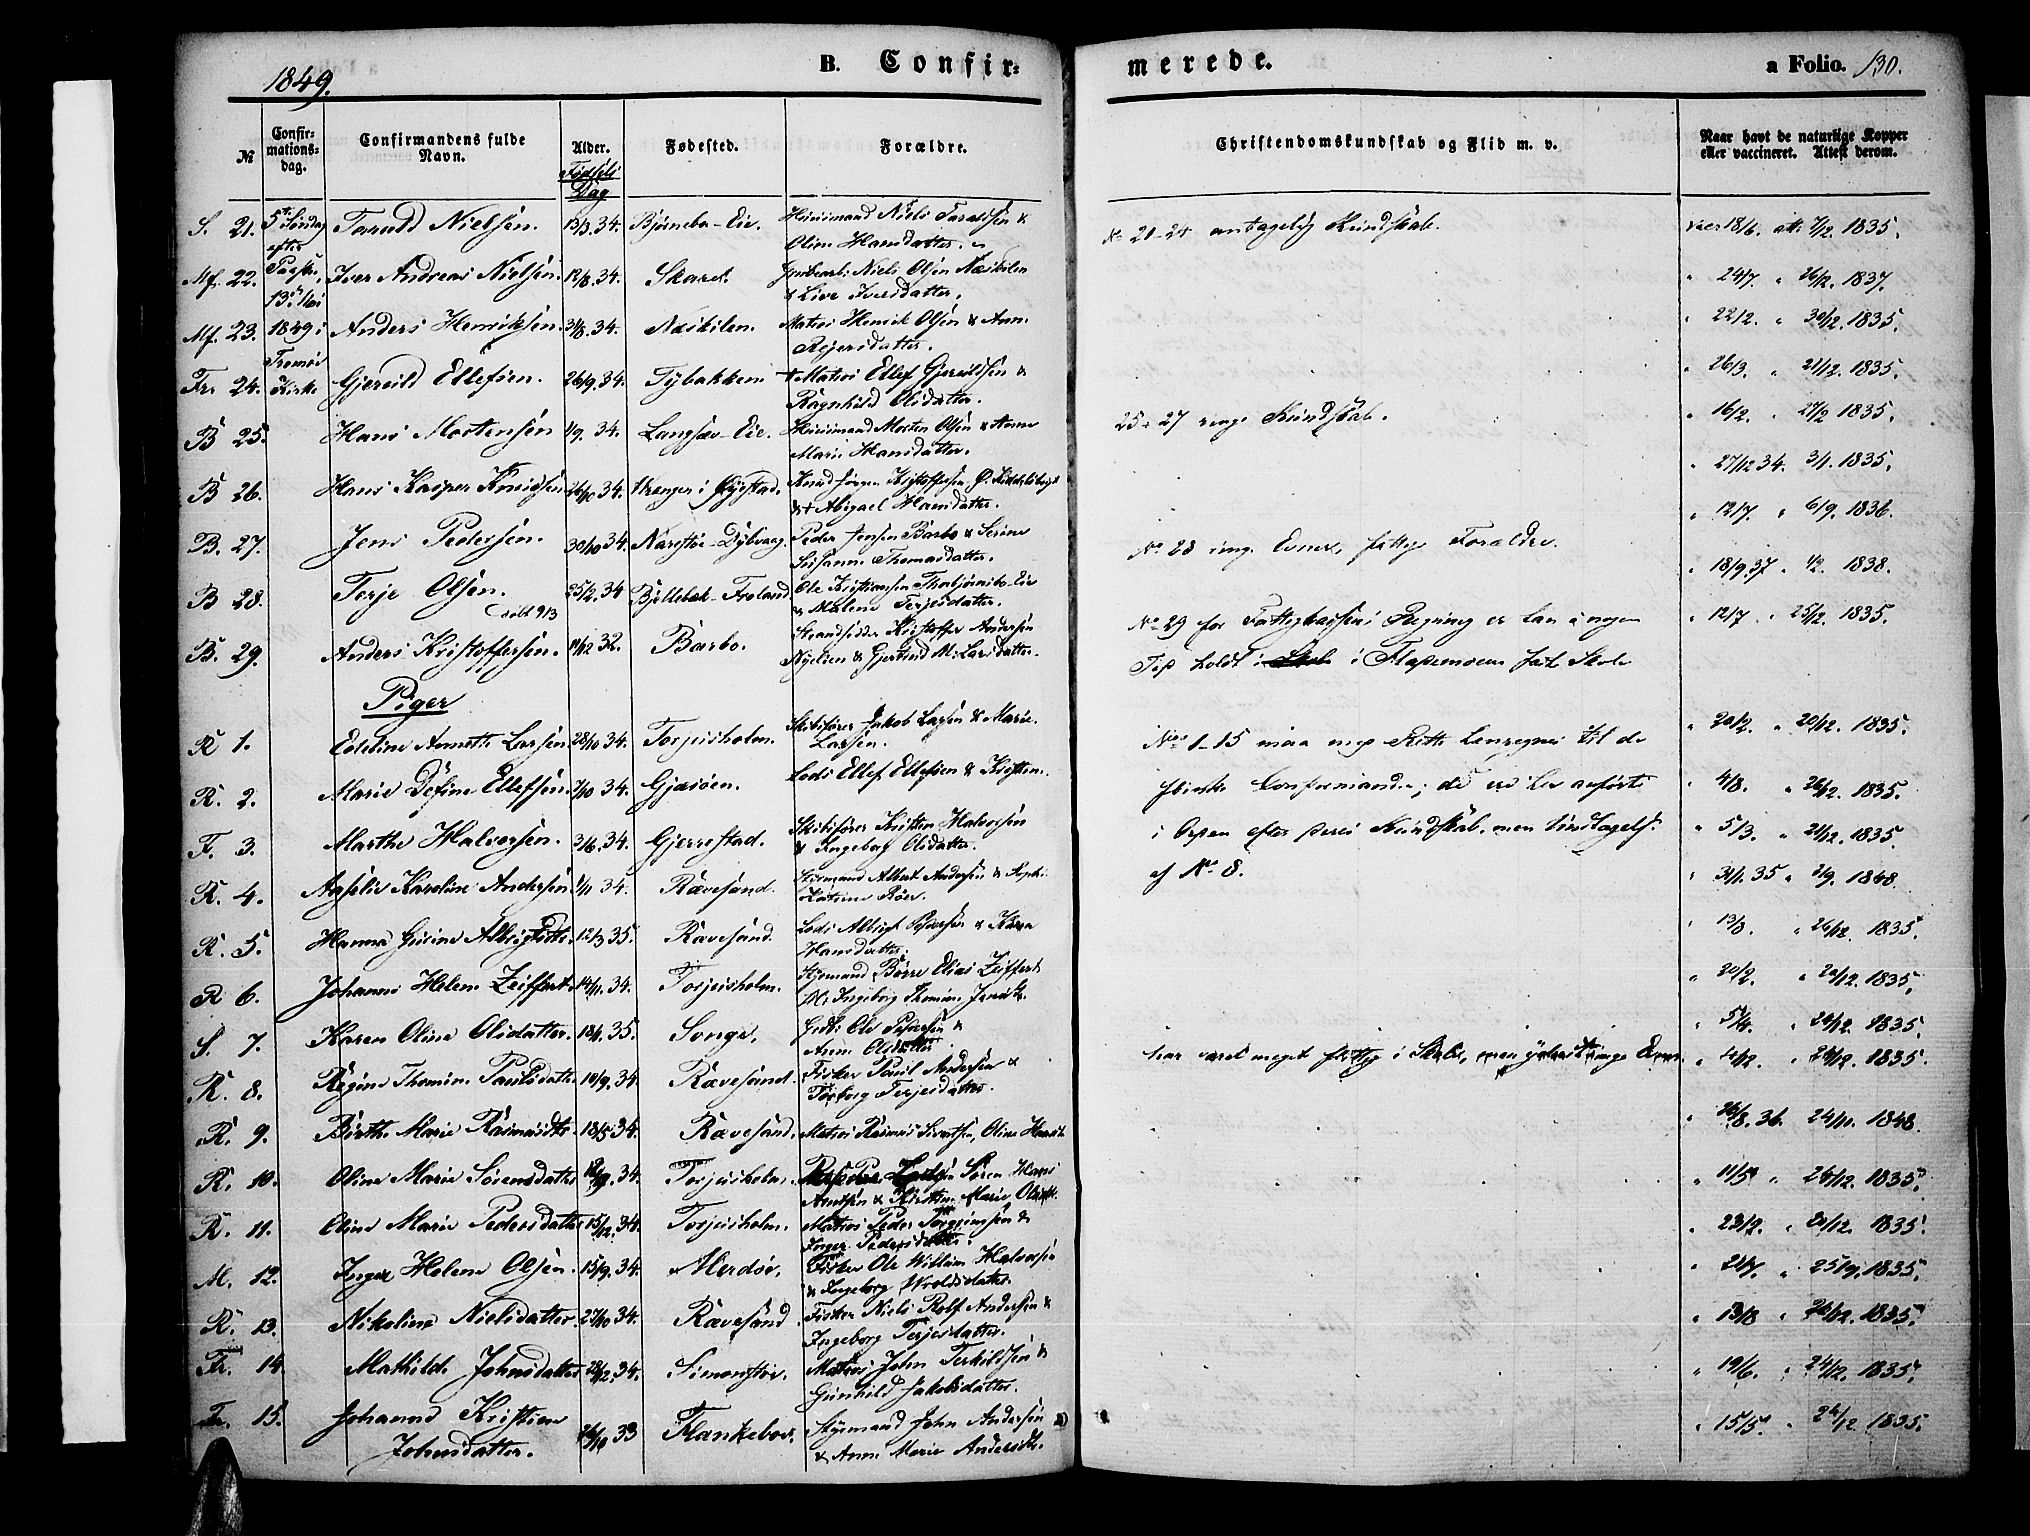 1849.
B. Confir=
merede.
a Folio. 130.
№
Confir=
mations=
dag.
Confirmandens fulde
Navn.
Alder.
Fødsels
Dag
Fødested.
Forældre.
Christendomskundskab og Flid m. v.
Naar havt de naturlige Kopper
eller vaccineret. Attest derom.
5te Søndag
efter
Paaske
13de Mai
1849 i
Tromø
Kirke
S. 21. Tarald Nielsen. 13/3.34. Bjørnebo-Eie. Huusmand Niels Taraldsen &
Oline Hansdatter.
Mf. 22. Iver Andreas Nielsen. 12/8.34. Skaret. Niels Olsen Næskilen
& Live Iversdatter.
Mf. 23. Anders Henriksen. 31/8.34. Næskilen. Matros Henrik Olsen & Ann.
Reiersdatter.
Fr. 24. Gjeruld Ellefsen. 26/9.34. Tybakken. + Matros Ellef Gjeruldsen &
Ragnhild Olsdatter.
B 25. Hans Mortensen 1/9.34. Langsæv-Eie. Huusmand Morten Olsen & Anne
Marie Hansdatter.
B 26. Hans Kasper Knudsen 26/10 34. Vrænger i Øyestad. Knud Jørgen Kristoffersen
& + Abigael Hansdatter.
B. 27. Jens Pedersen. 30/10 34. Narestø-Dybvaag. Peder Jensen Barbo & Serine
Susanne Thomasdatter.
B 28. Terje Olsen. 25/2.34 Bjellebæk-Froland Ole Kristiansen Thorbjørnsbo-Eie
& Malene Terjesdatter.
døbt 9/3
B. 29. Anders Kristoffersen. 14/12 32. Barbo. Strandsidder Kristoffer Andersen
Nyelien & Gjertrud M. Larsdatter.
Piger
R 1. Edeline Annette Larsen. 28/10 34. Torjusholm. Skibsfører Jakob Larsen & Marie
Larsen.
R. 2. Marie Døfine Ellefsen. 7/10 34. Gjæsøen. Lods Ellef Ellefsen & Kirsten.
F. 3. Marthe Halvorsen. 2/6.34. Gjerrestad. Skibsfører Kristen Halvorsen
& Ingeborg Olsdatter.
R. 4. Karoline Andersen 1/11 34. Rævesand. Styrmand Albert Andersen &
Katrine Røer.
R. 5. Hanna Gurine Albrigtsdtr. 12/3 35. Rævesand. Lods Albrigt Pedersen & Karen
Hansdatter.
R 6. Johanne Helene Zeiffert. 14/11.34. Torjusholm. Styrmand Børre Elias Zeiffert
M. Ingeborg Thomine
S. 7. Karen Oline Olsdatter. 18/1.35. Songe. Ole Pedersen &
Anne Olsdatter
R. 8. Regine Thomine Paulsdatter 10/9.34. Rævesand. Fisker Paul Andersen &
Torborg Terjesdatter.
R. 9. Birthe Marie Rasmusdtr. 18/5 34. Rævesand. Matros Rasmus Sivertsen, Oline
R. 10. Oline Marie Sørensdatter 12/9.34. Torjusholm. Søren Hans
Arntsen & Kirsten Marie
R. 11. Oline Marie Pedersdatter 15/12.34. Torjusholm. Matros Peder Torgrimsen &
Inger Pedersdatter.
M. 12. Inger Helene Olsen. 15/9.34. Merdø. Fisker Ole Willum Halvorsen
& Ingeborg Wroldsdatter.
R. 13. Nikoline Nielsdatter. 27/10 34. Rævesand. Fisker Niels Rolf Andersen &
Ingeborg Terjesdatter.
Fr. 14. Mathilde Johnsdatter 28/2.34. Simonstø. Matros John Terkildsen &
Gunhild Jakobsdatter.
Fr. 15. Johanne Kristine 26/10 33 Flankebo. Styrmand John Andersen
Johnsdatter. & Anne Marie Andersdtr.
No 21-24 antagelig Kundskab.
25-27 ringe Kundskab.
No. 28 ringe Evner, fattige Forældre.
No. 29 for Fattigkassens Regning er han i nogen
Tid holdt i Skole i fast Skole
Nos. 1-15 maa med Rette henregnes til de
flinke Confirmander; de ere her anførte
i Orden efter deres Kundskab, men Undtagelse
af No. 8.
har været meget flittig i Skole, men ringe Evner.
vacc 18/6. att. 7/12. 1835.
" 24/7. " 26/12. 1837.
" 22/2. " 30/12. 1835.
" 26/3. " 21/12. 1835.
" 16/2. " 27/2 1835.
" 27/12 34. 3/1. 1835.
" 12/7. " 6/9. 1836.
" 18/9.37 " 1/2. 1838.
" 12/7 " 25/12. 1835.
" 20/2. " 20/12. 1835.
" 4/8. " 26/12. 1835.
" 5/3. " 21/12. 1835.
" 31/1.35 " 3/9. 1848.
" 13/8. " 26/12. 1835.
" 20/2. " 20/12. 1835.
" 5/4. " 20/12. 1835.
" 4/12. " 20/12. 1835.
" 26/8.36. 24/11. 1848.
" 11/5 " 26/12. 1835.
" 23/2. " 21/12. 1835.
" 21/7. " 25/9. 1835.
" 13/8 " 26/12. 1835.
" 19/6. " 24/12. 1835.
" 15/5. " 26/12 1835.